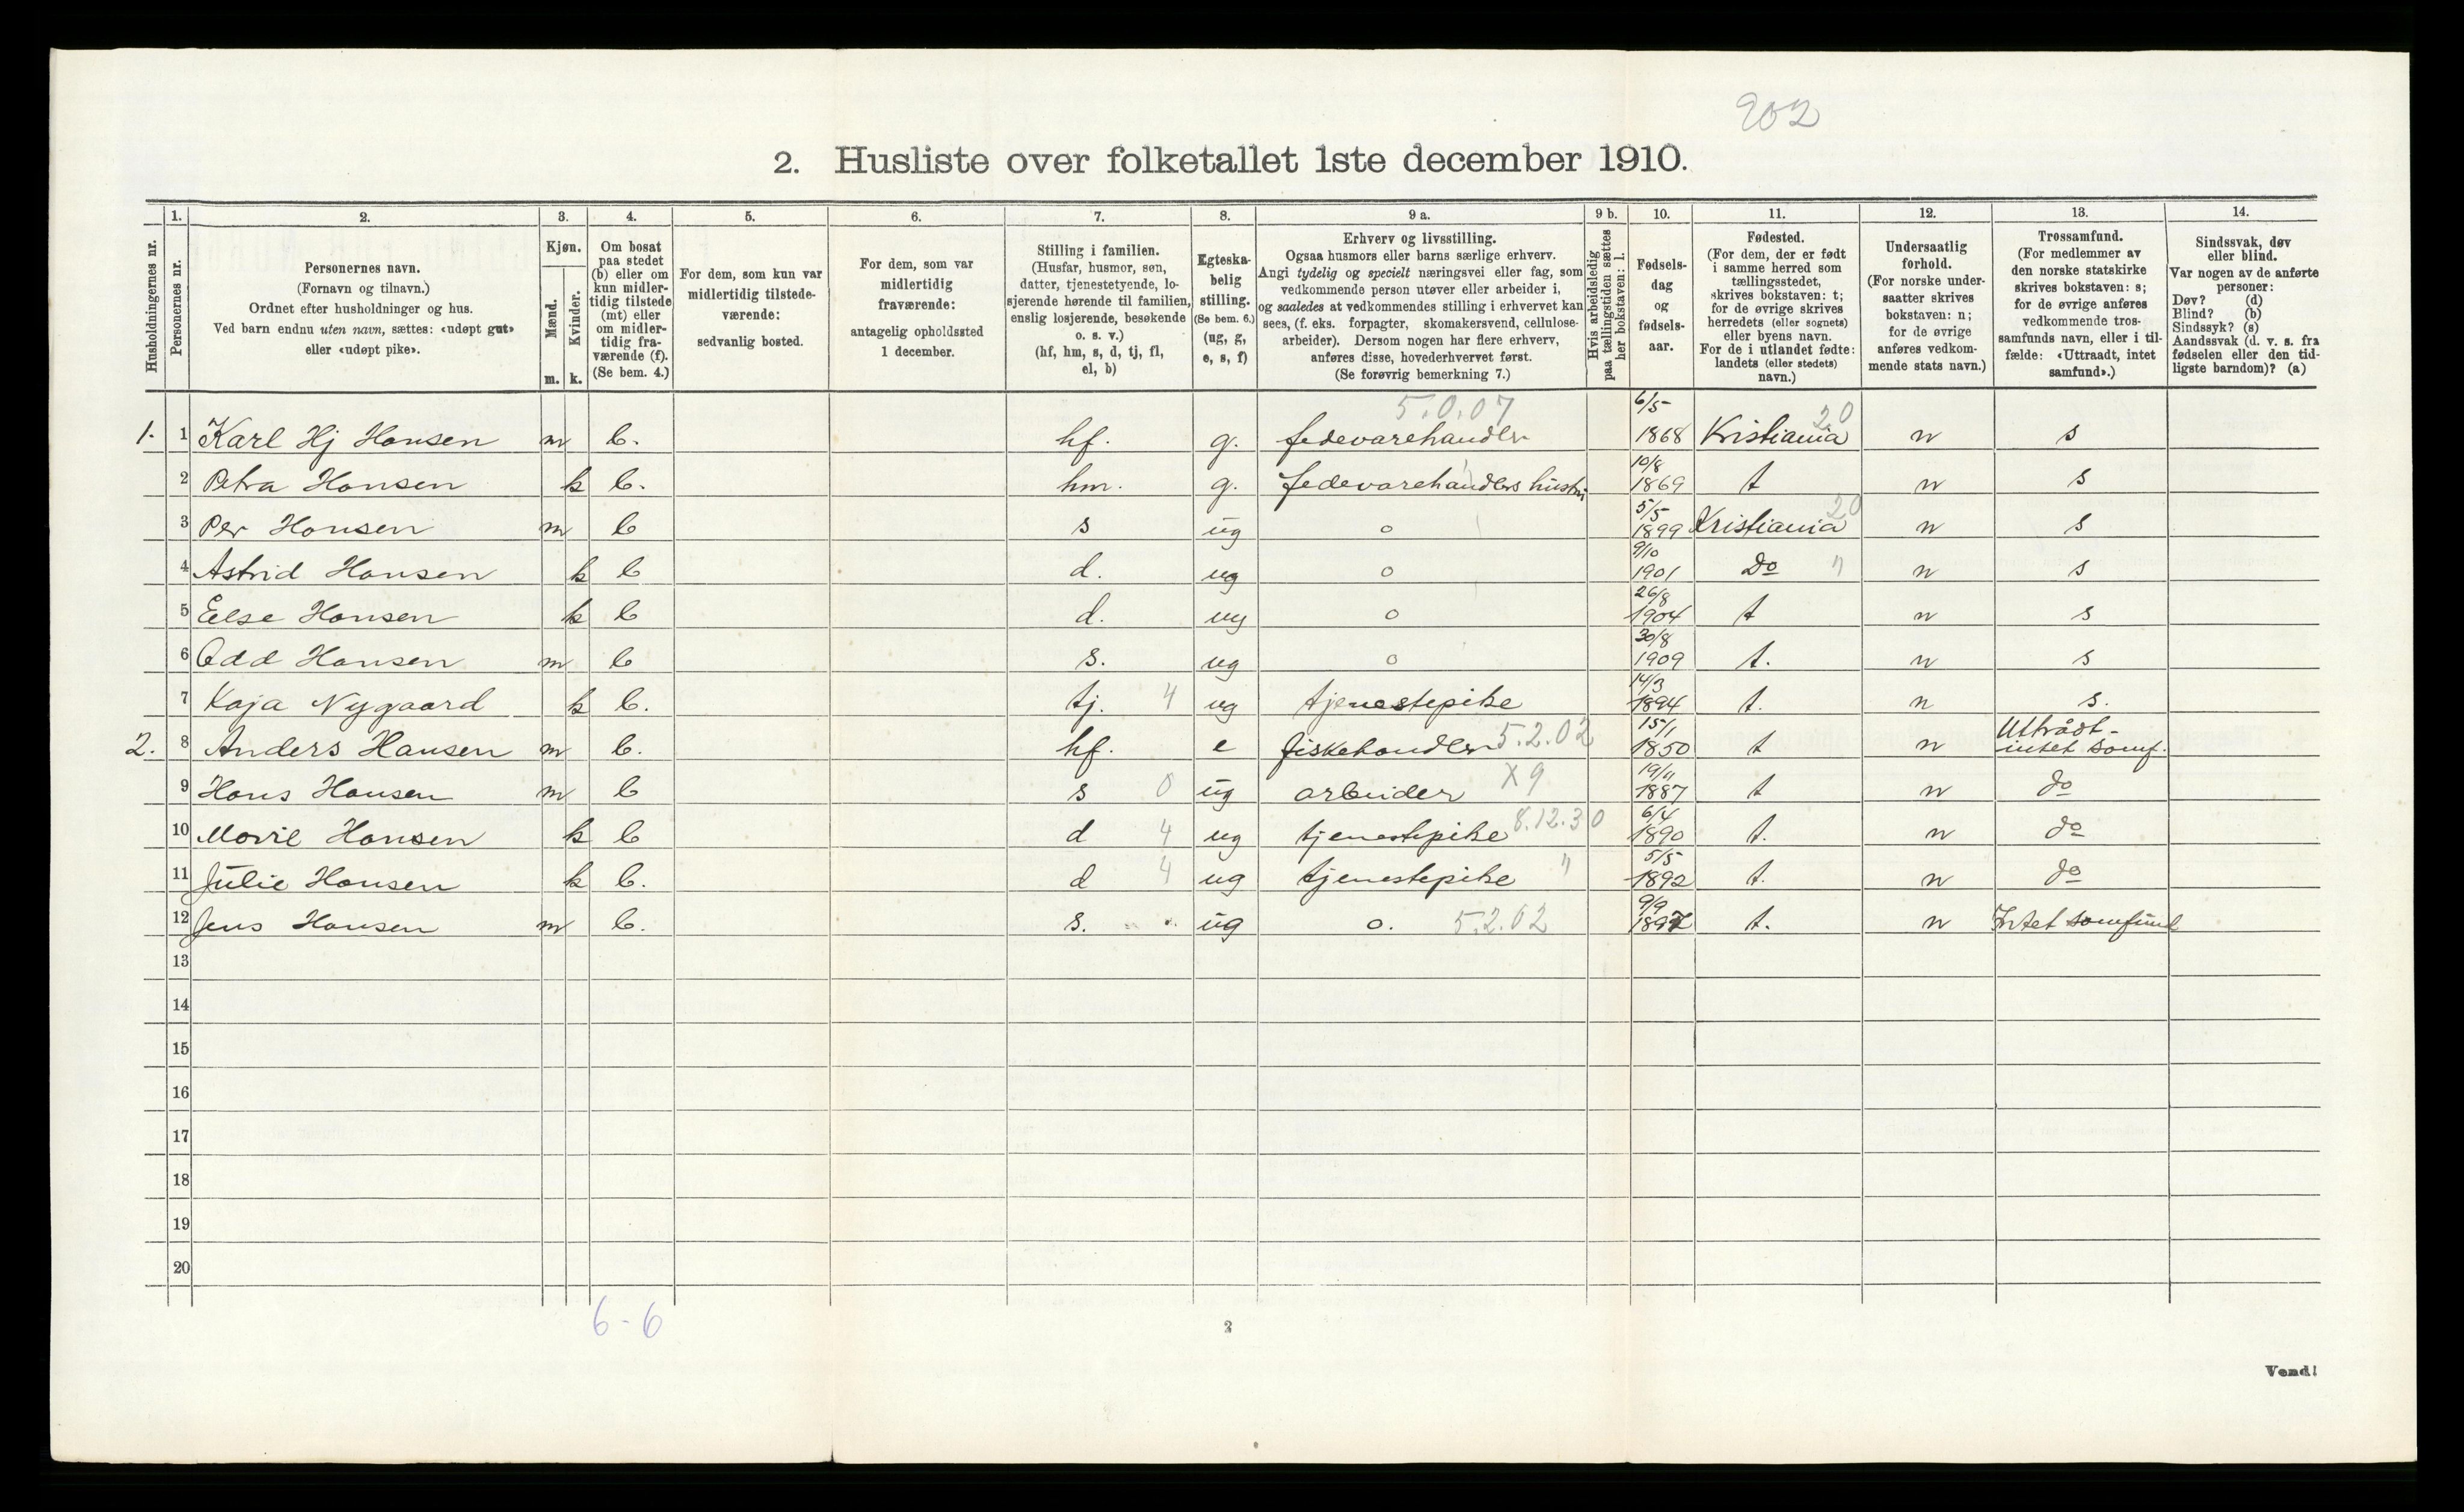 202
2. Husliste over folketallet 1ste december 1910.
Husholdningernes nr.
1.
Personernes nr.
2.
Personernes navn.
(Fornavn og tilnavn.)
Ordnet efter husholdninger og hus.
Ved barn endnu uten navn, sættes: «udøpt gut»
eller «udøpt pike».
3.
Kjøn.
Mænd.
Kvinder.
m. k.
4.
Om bosat
paa stedet
(b) eller om
kun midler-
tidig tilstede
(mt) eller
om midler-
tidig fra-
værende (f).
(Se bem. 4.)
5.
For dem, som kun var
midlertidig tilstede-
værende:
sedvanlig bosted.
6.
For dem, som var
midlertidig
fraværende:
antagelig opholdssted
1 december.
7.
Stilling i familien.
(Husfar, husmor, søn,
datter, tjenestetyende, lo-
sjerende hørende til familien,
enslig losjerende, besøkende
o. s. v.)
(hf, hm, s, d, tj, fl,
el, b)
8.
Egteska-
belig
stilling.
(Se bem. 6.)
(ug, g,
e, s, f)
9 a.
Erhverv og livsstilling.
Ogsaa husmors eller barns særlige erhverv.
Angi tydelig og specielt næringsvei eller fag, som
vedkommende person utøver eller arbeider i,
og saaledes at vedkommendes stilling i erhvervet kan
sees, (f. eks. forpagter, skomakersvend, cellulose-
arbeider). Dersom nogen har flere erhverv,
anføres disse, hovederhvervet først.
(Se forøvrig bemerkning 7.)
9 b.
Hvis arbeidsledig
paa tællingstiden sættes
her bokstaven: l.
10.
Fødsels-
dag
og
fødsels-
aar.
11.
Fødested.
(For dem, der er født
i samme herred som
tællingsstedet,
skrives bokstaven: t;
for de øvrige skrives
herredets (eller sognets)
eller byens navn.
For de i utlandet fødte:
landets (eller stedets)
navn.)
12.
Undersaatlig
forhold.
(For norske under-
saatter skrives
bokstaven: n;
for de øvrige
anføres vedkom-
mende stats navn.)
13.
Trossamfund.
(For medlemmer av
den norske statskirke
skrives bokstaven: s;
for de øvrige anføres
vedkommende tros-
samfunds navn, eller i til-
fælde: «Uttraadt, intet
samfund».)
14.
Sindssvak, døv
eller blind.
Var nogen av de anførte
personer:
Døv? (d)
Blind? (b)
Sindssyk? (s)
Aandssvak (d. v. s. fra
fødselen eller den tid-
ligste barndom)? (a)
5.0.07 6/5 20
1. 1 Karl Hj Hansen m b. hf. g. fedevarehandler 1868 Kristiania n s
10/8
2 Petra Hansen k b. hm. g. fedevarehandlers hustru 1869 t n s
5/5 20
3 Per Hansen m b s ug o 1899 Kristiania n s
9/10
4 Astrid Hansen k b d. ug o 1901 Do " n s
26/8
5 Else Hansen k b d. ug o 1904 t n s
30/8
6 Odd Hansen m b s. ug o 1909 t. n s
14/3
7 Kaja Nygaard k b. tj. 4 ug tjenestepike 1894 t. n s.
15/1 Uttrådt -
2. 8 Anders Hansen m b. hf. e fiskehandler 5.2.02 1850 t n intet samf.
19/11
9 Hans Hansen m b s 0 ug arbeider X9 1887 t n do
6/4
10 Marie Hansen k b d 4 ug tjenestepike 8.12.30 1890 t. n do
5/5
11 Julie Hansen k b. d 4 ug tjenestepike " 1892 t. n do
9/9
12 Jens Hansen m b. s. ug o. 5.2.02 1897 t. n Intet samfund
13
14
15
16
17
18
19
20
6 - 6
2
Vend!